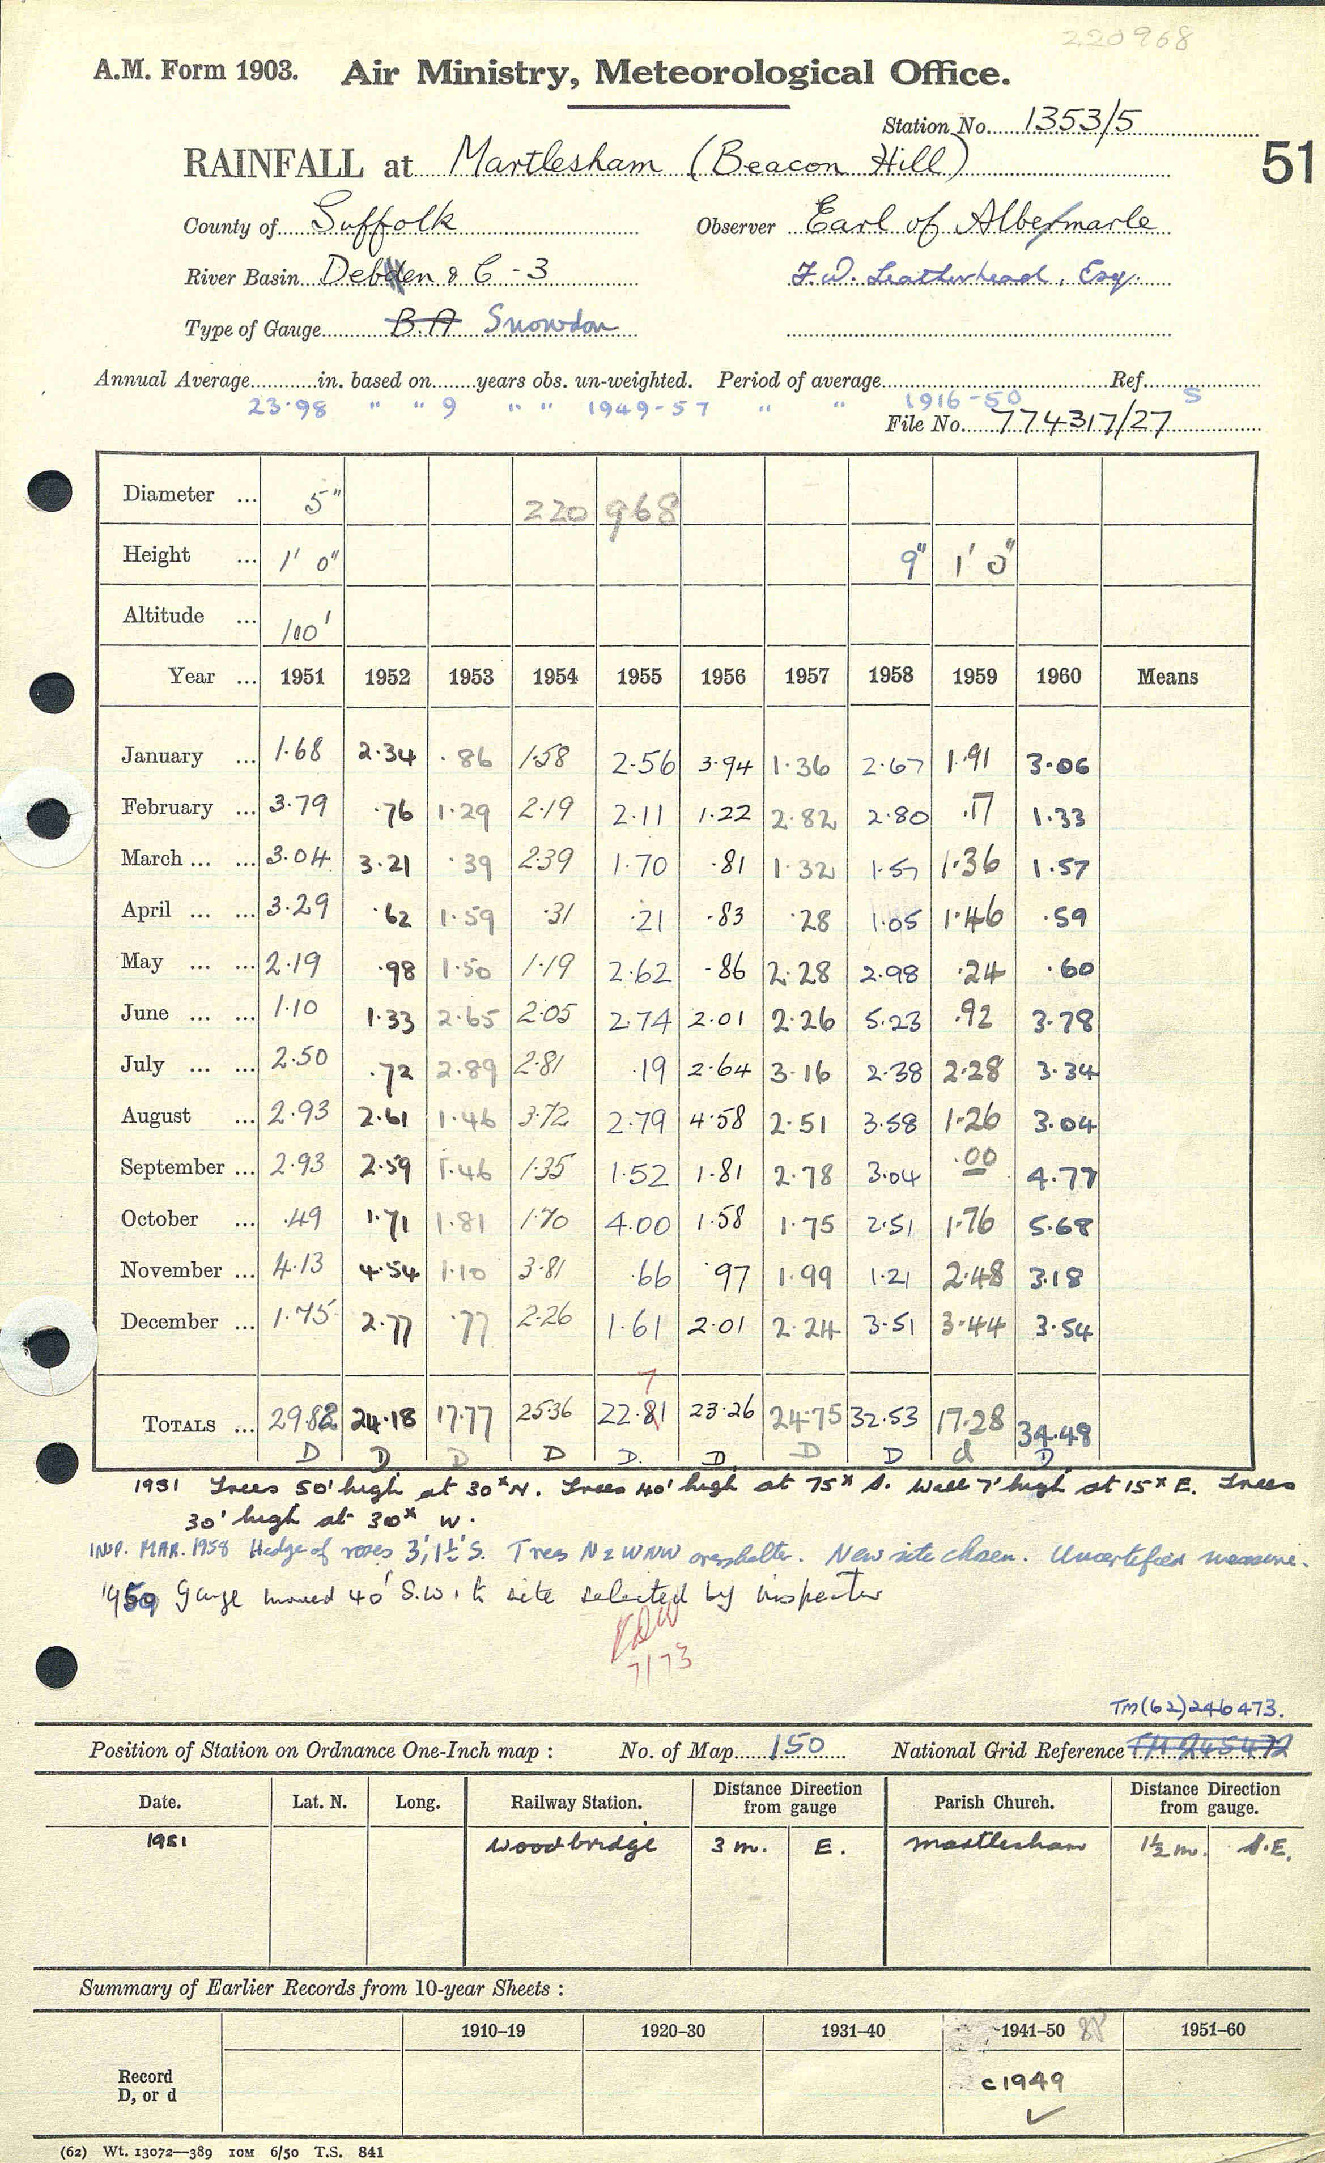 220968
A.M. Form 1903. Air Ministry, Meteorological Office.
Station No. 1353/5
RAINFALL at Martlesham (Beacon Hill)
51
County of Suffolk Observer Earl of Albermarle
River Basin Debden & C - 3 F.W. Leatherhead, Esq.
Type of Gauge B.A Snowdon
Annual Average in. based on years obs. un-weighted. Period of average Ref.
23.98 " " 9 " " 1949-57 " " 1916-50 S
File No. 774317/27
Diameter ... 5" 220 968
Height ... 1' 0" 9" 1' 0"
Altitude ... 100'
Year ... 1951 1952 1953 1954 1955 1956 1957 1958 1959 1960 Means
January ... 1.68 2.34 .86 1.58 2.56 3.94 1.36 2.67 1.91 3.06
February ... 3.79 .76 1.29 2.19 2.11 1.22 2.82 2.80 .17 1.33
March ... ... 3.04 3.21 .39 2.39 1.70 .81 1.32 1.57 1.36 1.57
April ... ... 3.29 .62 1.59 .31 .21 .83 .28 1.05 1.46 .59
May ... ... 2.19 .98 1.50 1.19 2.62 .86 2.28 2.98 .24 .60
June ... ... 1.10 1.33 2.65 2.05 2.74 2.01 2.26 5.23 .92 3.78
July ... ... 2.50 .72 2.89 2.81 .19 2.64 3.16 2.38 2.28 3.34
August ... 2.93 2.61 1.46 3.72 2.79 4.58 2.51 3.58 1.26 3.04
September ... 2.93 2.59 1.46 1.35 1.52 1.81 2.78 3.04 .00 4.77
October ... .49 1.71 1.81 1.70 4.00 1.58 1.75 2.51 1.76 5.68
November ... 4.13 4.54 1.10 3.81 .66 .97 1.99 1.21 2.48 3.18
December ... 1.75 2.77 .77 2.26 1.61 2.01 2.24 3.51 3.44 3.54
7
TOTALS ... 29.82 24.18 17.77 25.36 22.81 23.26 24.75 32.53 17.28 34.48
D D D D D. D D D d D
1951 Trees 50' high at 30ˣ N. Trees 40' high at 75ˣ S. Wall 7' high at 15ˣ E. Trees
30' high at 30ˣ W.
INSP. MAR. 1958 Hedge of roses 3', 1½' S. Trees N & WNW overshelter. New site chosen. Uncertified measure.
1959 Gauge moved 40' S.W. to site selected by inspector
7/73
TM(62)246473.
Position of Station on Ordnance One-Inch map : No. of Map 150 National Grid Reference TM 245472
Date. Lat. N. Long. Railway Station. Distance from gauge Direction Parish Church. Distance Direction from gauge.
1951 Woodbridge 3 m. E. Martlesham 1½ m. S.E.
Summary of Earlier Records from 10-year Sheets :
1910–19 1920–30 1931–40 1941–50 1951–60
Record
D, or d
c 1949
(62) Wt. 13072—389 10M 6/50 T.S. 841